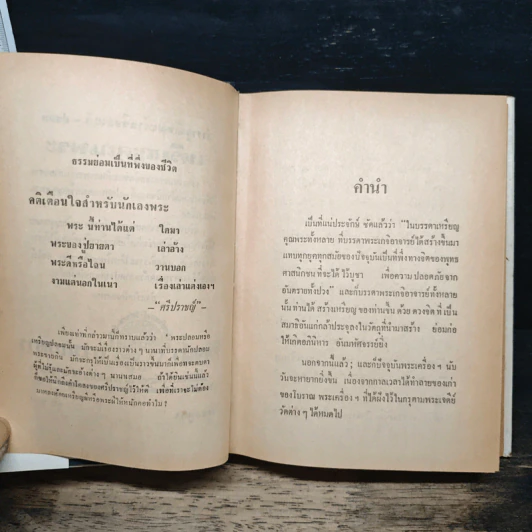 ธรรมย่อมเป็นที่พึ่งของชีวิต
คติเตือนใจสำหรับนักเลงพระ
พระ นี้ท่านได้แต่ ใดมา
พระของปู่ยายตา เล่าอ้าง
พระดีหรือไฉน วานบอก
งามแต่นอกในเน่า เรื่องเล่าแต่งเอง ฯ
—"ศรีปราชญ์"—
เพียงเท่าที่กล่าวมานี้ก็ทราบแล้วว่า พระปลอมหรือ
เหรียญปลอมนั้น มักจะมีเรื่องราวต่าง ๆ นานา
คำนำ
เป็นที่แน่ประจักษ์ ชัดแล้วว่า "ในบรรดาเหรียญ
คุณพระทั้งหลาย ที่บรรดาพระเกจิอาจารย์ได้สร้างขึ้นมา
แทบทุกยุคทุกสมัยของปัจจุบันเป็นที่พึ่งทางจิตของพุทธ
ศาสนิกชน ที่จะได้ ไว้บูชา เพื่อความปลอดภัยจาก
อันตรายทั้งปวง" และที่บรรดาพระเกจิอาจารย์ ทั้งหลาย
นั้น ท่านได้ สร้างเหรียญ ของท่านขึ้น ด้วย ดวงจิต ที่ เป็น
สมาธิอันแก่กล้าประจุลงในวัตถุที่นำมาสร้าง ย่อมก่อ
ให้เกิดอภินิหาร อันมหัศจรรย์ยิ่ง
นอกจากนี้แล้ว ; และก็ปัจจุบันพระเครื่อง ฯ นับ
วันจะหายากยิ่งขึ้น เนื่องจากกาลเวลาได้ทำลายของเก่า
ของโบราณ พระเครื่อง ฯ ที่ได้ฝังไว้ในกรุตามพระเจดีย์
วัดต่าง ๆ ได้หมดไป